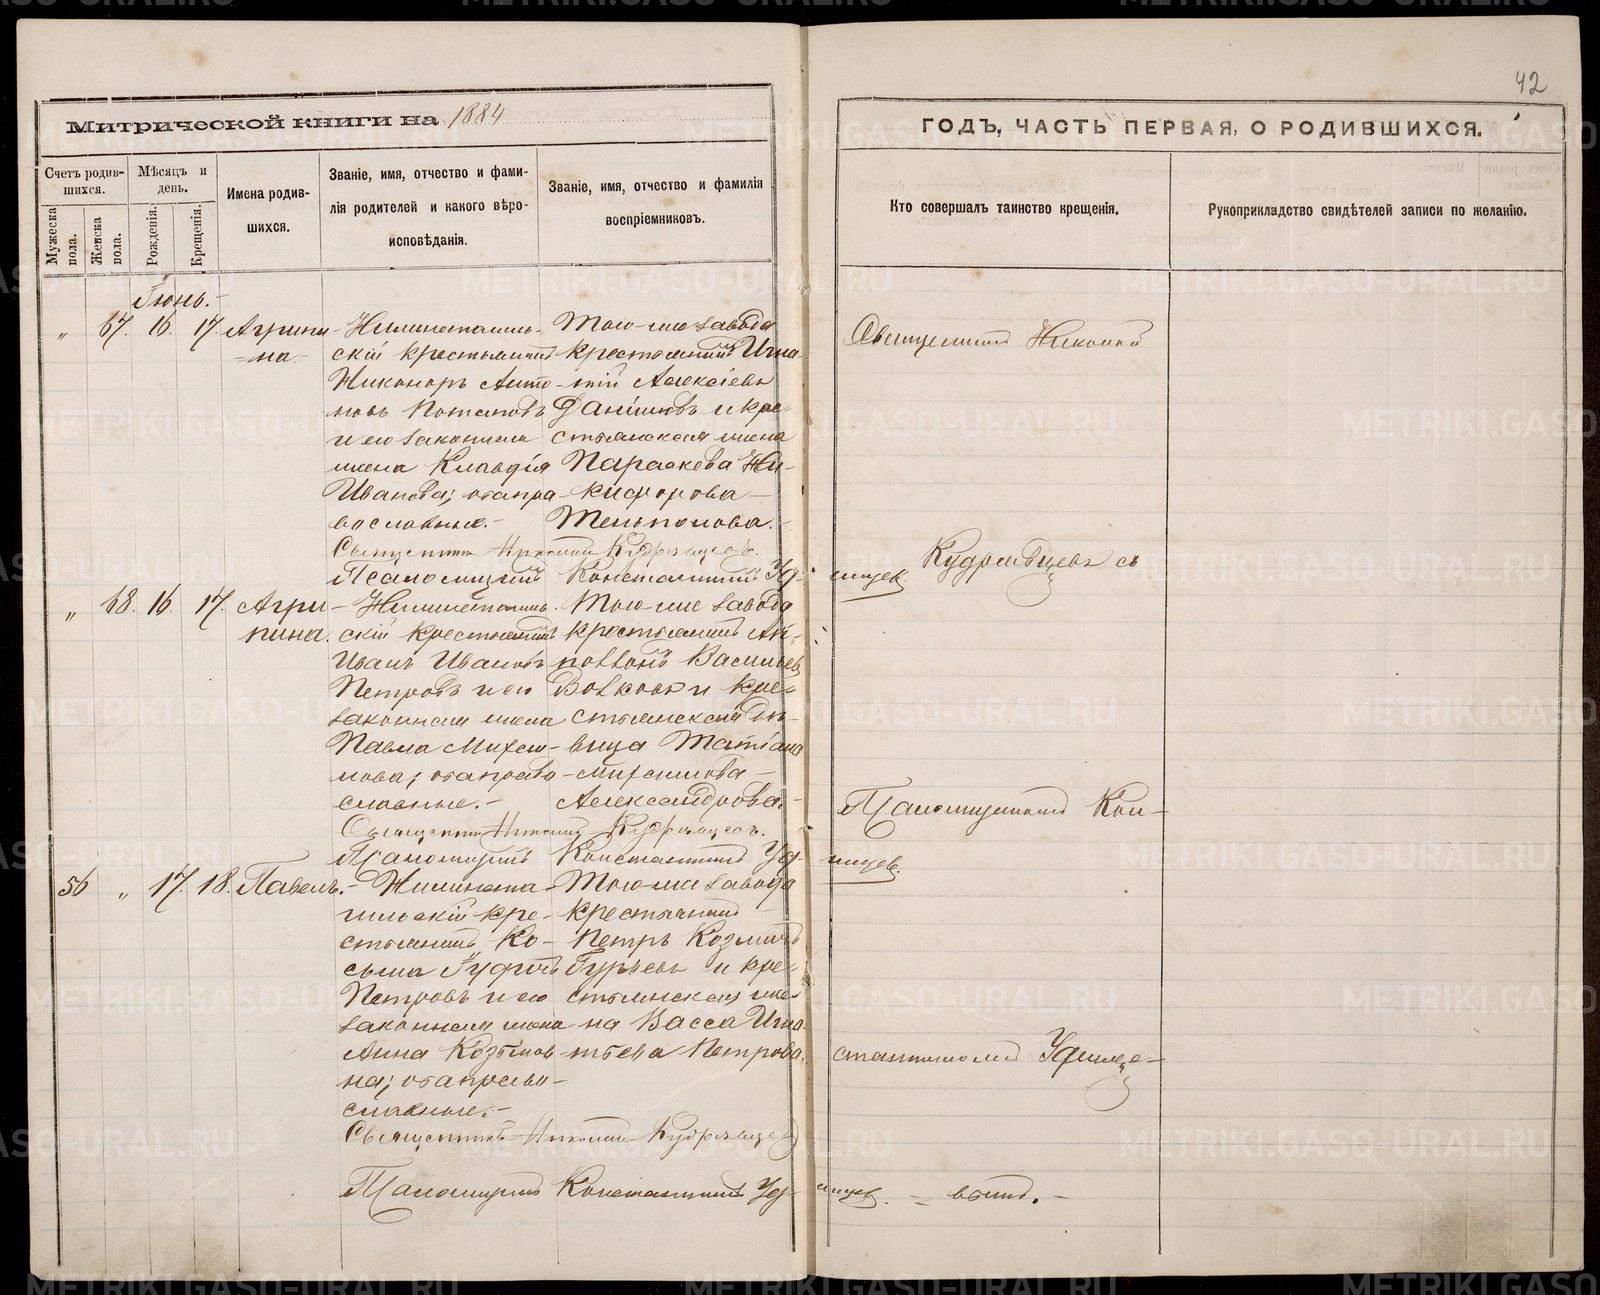 42
Митрической книги на 1884
ГОДЪ, ЧАСТЬ ПЕРВАЯ, О РОДИВШИХСЯ.
Счетъ родившихся.
Мужеска пола.
Женска пола.
Мѣсяцъ и день.
Рожденія.
Крещенія.
Имена родившихся.
Званіе, имя, отчество и фами-
лія родителей и какого вѣро-
исповѣданія.
Званіе, имя, отчество и фамилія
воспріемниковъ.
Кто совершалъ таинство крещенія.
Рукоприкладство свидѣтелей записи по желанію.
Іюнь.
„ 67. 16. 17. Агрипи-
на.
Нижнетагиль-
скій крестьянинъ
Никаноръ Анто-
новъ Потаповъ
и его законная
жена Клавдія
Иванова; оба пра-
вославные.
Того-же завода
крестьянинъ Игна-
тій Алексіевъ
Даниловъ и кре-
стьянская жена
Параскева Ни-
кифорова
Священникъ Николай Кудрявцевъ.
Псаломщикъ Константинъ Уд-
„ 68. 16. 17. Агри-
пина.
Нижнетагиль-
скій крестьянинъ
Иванъ Ивановъ
Петровъ и его
законная жена
Павла Михаи-
лова; оба право-
славные.
Того-же завода
крестьянинъ Ап-
поллонъ Васильевъ
Волковъ и кре-
стьянская дѣ-
вица Татіана
Михаилова
Александрова.
Священникъ Николай Кудрявцевъ.
Псаломщикъ Константинъ Уд-
56 „ 17. 18. Павелъ.
Нижнета-
гильскій кре-
стьянинъ Ко-
сьма Гуріевъ
Петровъ и его
законная жена
Анна Козьмов-
на; оба право-
славные.
Того-же завода
крестьянинъ
Петръ Козминъ
Гурьевъ и кре-
стьянская же-
на Васса Игна-
тьева Петрова.
Священникъ Николай Кудрявцевъ
Псаломщикъ Константинъ Уд-
Священникъ Николай
Кудрявцевъ съ
Псаломщикомъ Кон-
стантиномъ